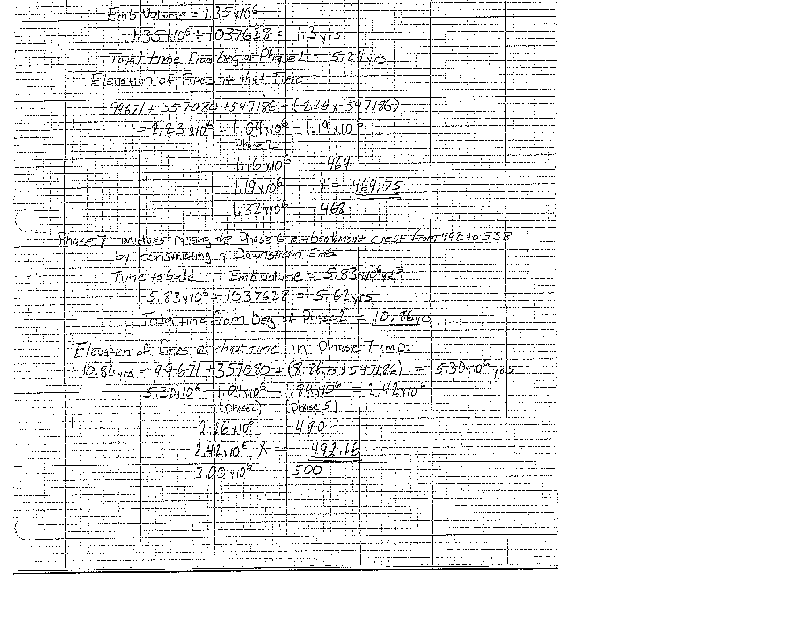 Emb Volume = 1.35x10⁶
1.35x10⁶ ÷ 1037628 = 1.3 yrs
Total time from beg of Phase 2 = 5.24 yrs
Elevation of Fines at that Time
99671 + 357080 + 547186
= 2.23x10⁶ - 1.04x10⁶ = 1.19x10⁶
Phase 2
1.16x10⁶ 464
1.19x10⁶ X = 464.75
1.32x10⁶ 468
Phase 7 involves raising the Phase 6 embankment crest from 498 to 538
by constructing a Downstream Emb
Time to build Emb volume = 5.83x10⁶ yd³
5.83x10⁶ ÷ 1037628 = 5.62 yrs
Total time from beg of Phase 2 = 10.86 yrs
Elevation of Fines at that time in Phase 7 imp.
10.86 yrs = 99671 + 357080 + (8.86 x 547186) = 5.30x10⁶ yds
5.30x10⁶ - 1.04x10⁶ - 1.84x10⁶ = 2.42x10⁶
(Phase 2) (Phase 5)
490
2.42x10⁶ X 492.16
3.00x10⁶ 500